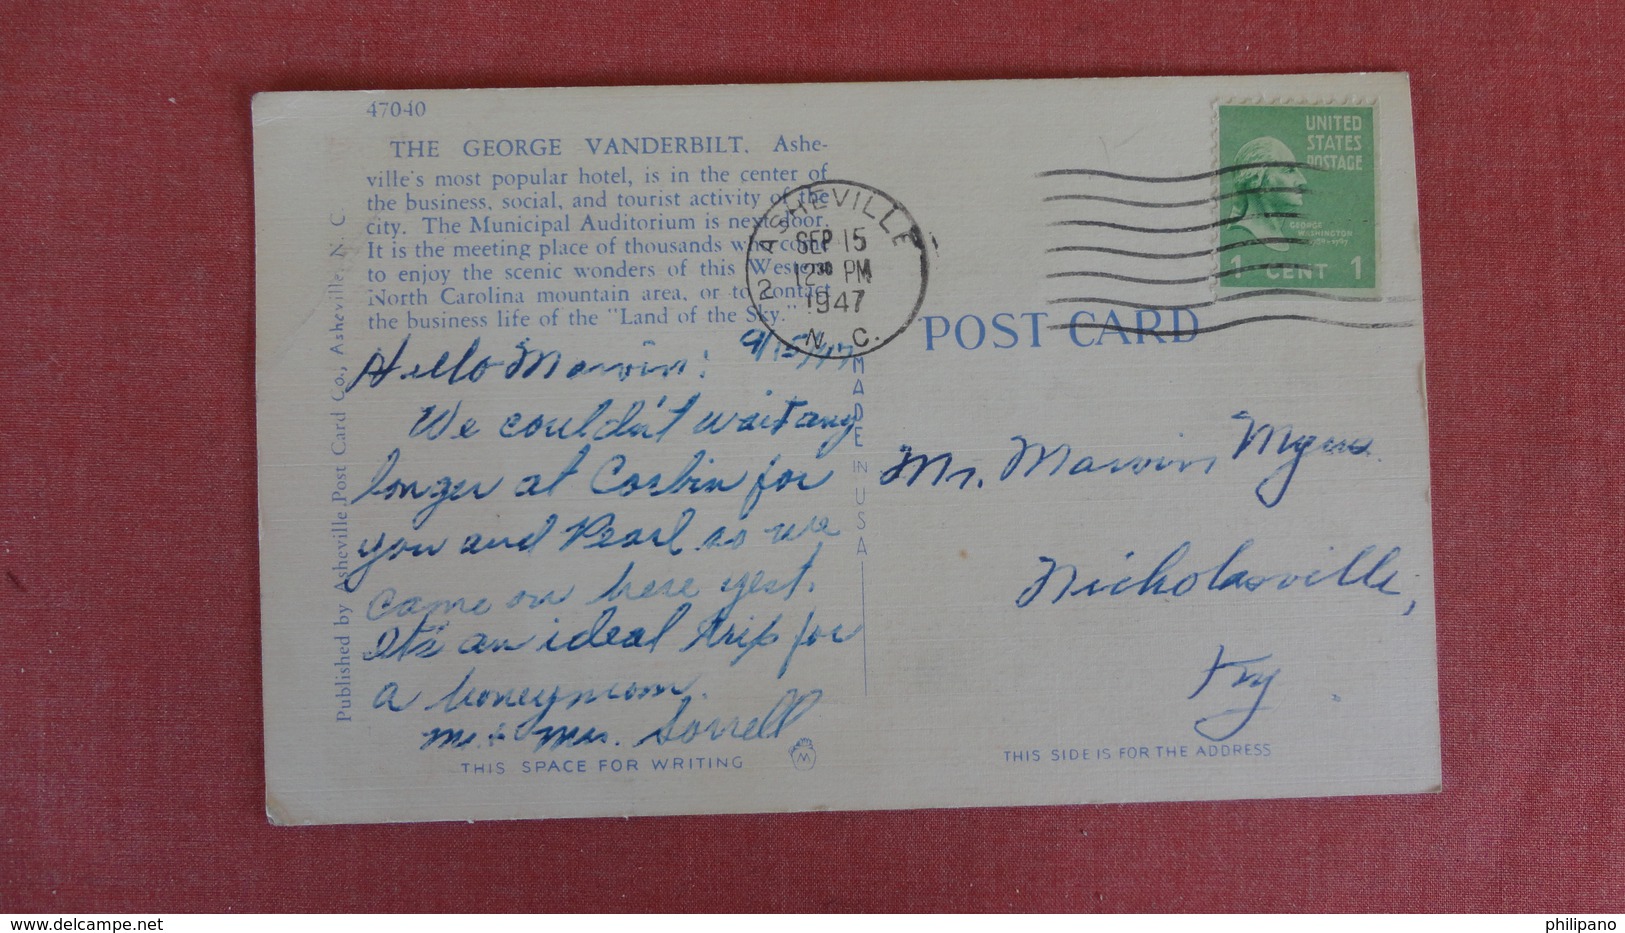 47040
THE GEORGE VANDERBILT. Ashe-
ville's most popular hotel, is in the center of
the business, social, and tourist activity of the
city. The Municipal Auditorium is next door.
It is the meeting place of thousands who come
to enjoy the scenic wonders of this Western
North Carolina mountain area, or to contact
the business life of the "Land of the Sky."
Published by Asheville Post Card Co., Asheville, N. C.
9/15/47
Hello Marvin:
We couldn't wait any
longer at Corbin for
you and Pearl so we
came on here yest.
It's an ideal trip for
a honeymoon.
Mr. & Mrs. Sorrell
THIS SPACE FOR WRITING
M
MADE IN USA
2 ASHEVILLE
SEP 15
12 30 PM
1947
N. C.
UNITED
STATES
POSTAGE
GEORGE
WASHINGTON
1789-1797
1 CENT 1
POST CARD
Mr. Marvin Myers
Nicholasville,
Ky
THIS SIDE IS FOR THE ADDRESS
www.delcampe.net
philipano